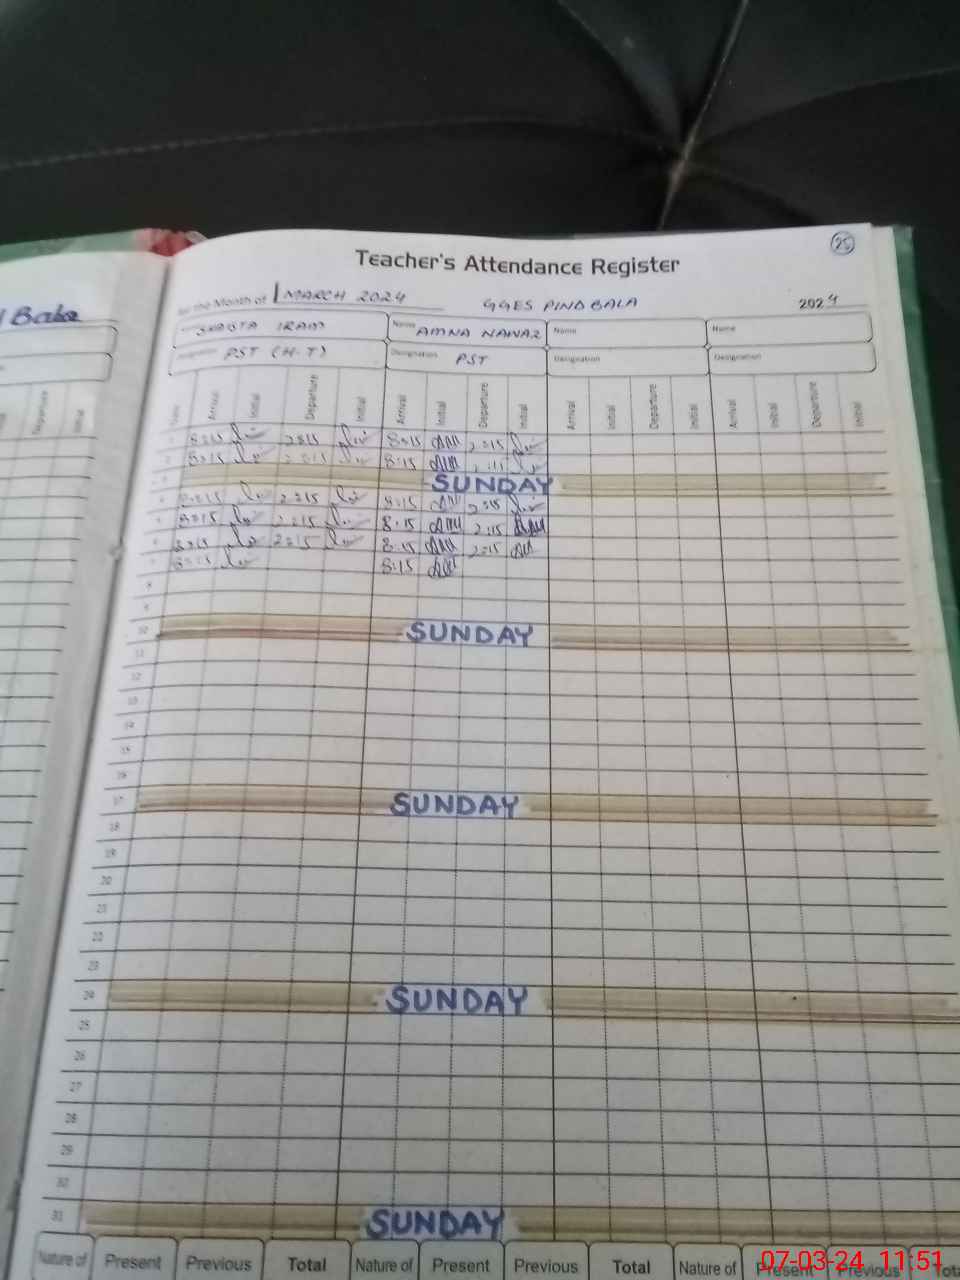 Bala
25
Teacher's Attendance Register
for the Month of MARCH 2024 GGES PIND BALA 2024
IRAM Name AMNA NAWAZ Name Name
Designation PST (H-T) Designation PST Designation Designation
Departure Initial
Arrival Initial Departure Initial Arrival Initial Departure Initial Arrival Initial Departure Initial Arrival Initial Departure Initial
1 8:15 2:15 8:15 AM 2:15
2 8:15 2:15 8:15 AM
SUNDAY
8:15 2:15 8:15 AM 2:15
8:15 2:15 8:15 AM 2:15
8:15 2:15 8:15 AM 2:15 AM
8:15 8:15 AM
8
9
10 SUNDAY
11
12
13
14
15
16
17 SUNDAY
18
19
20
21
22
23
24 SUNDAY
25
26
27
28
29
30
31 SUNDAY
Nature of Present Previous Total Nature of Present Previous Total Nature of Present Previous
07-03-24 11:51